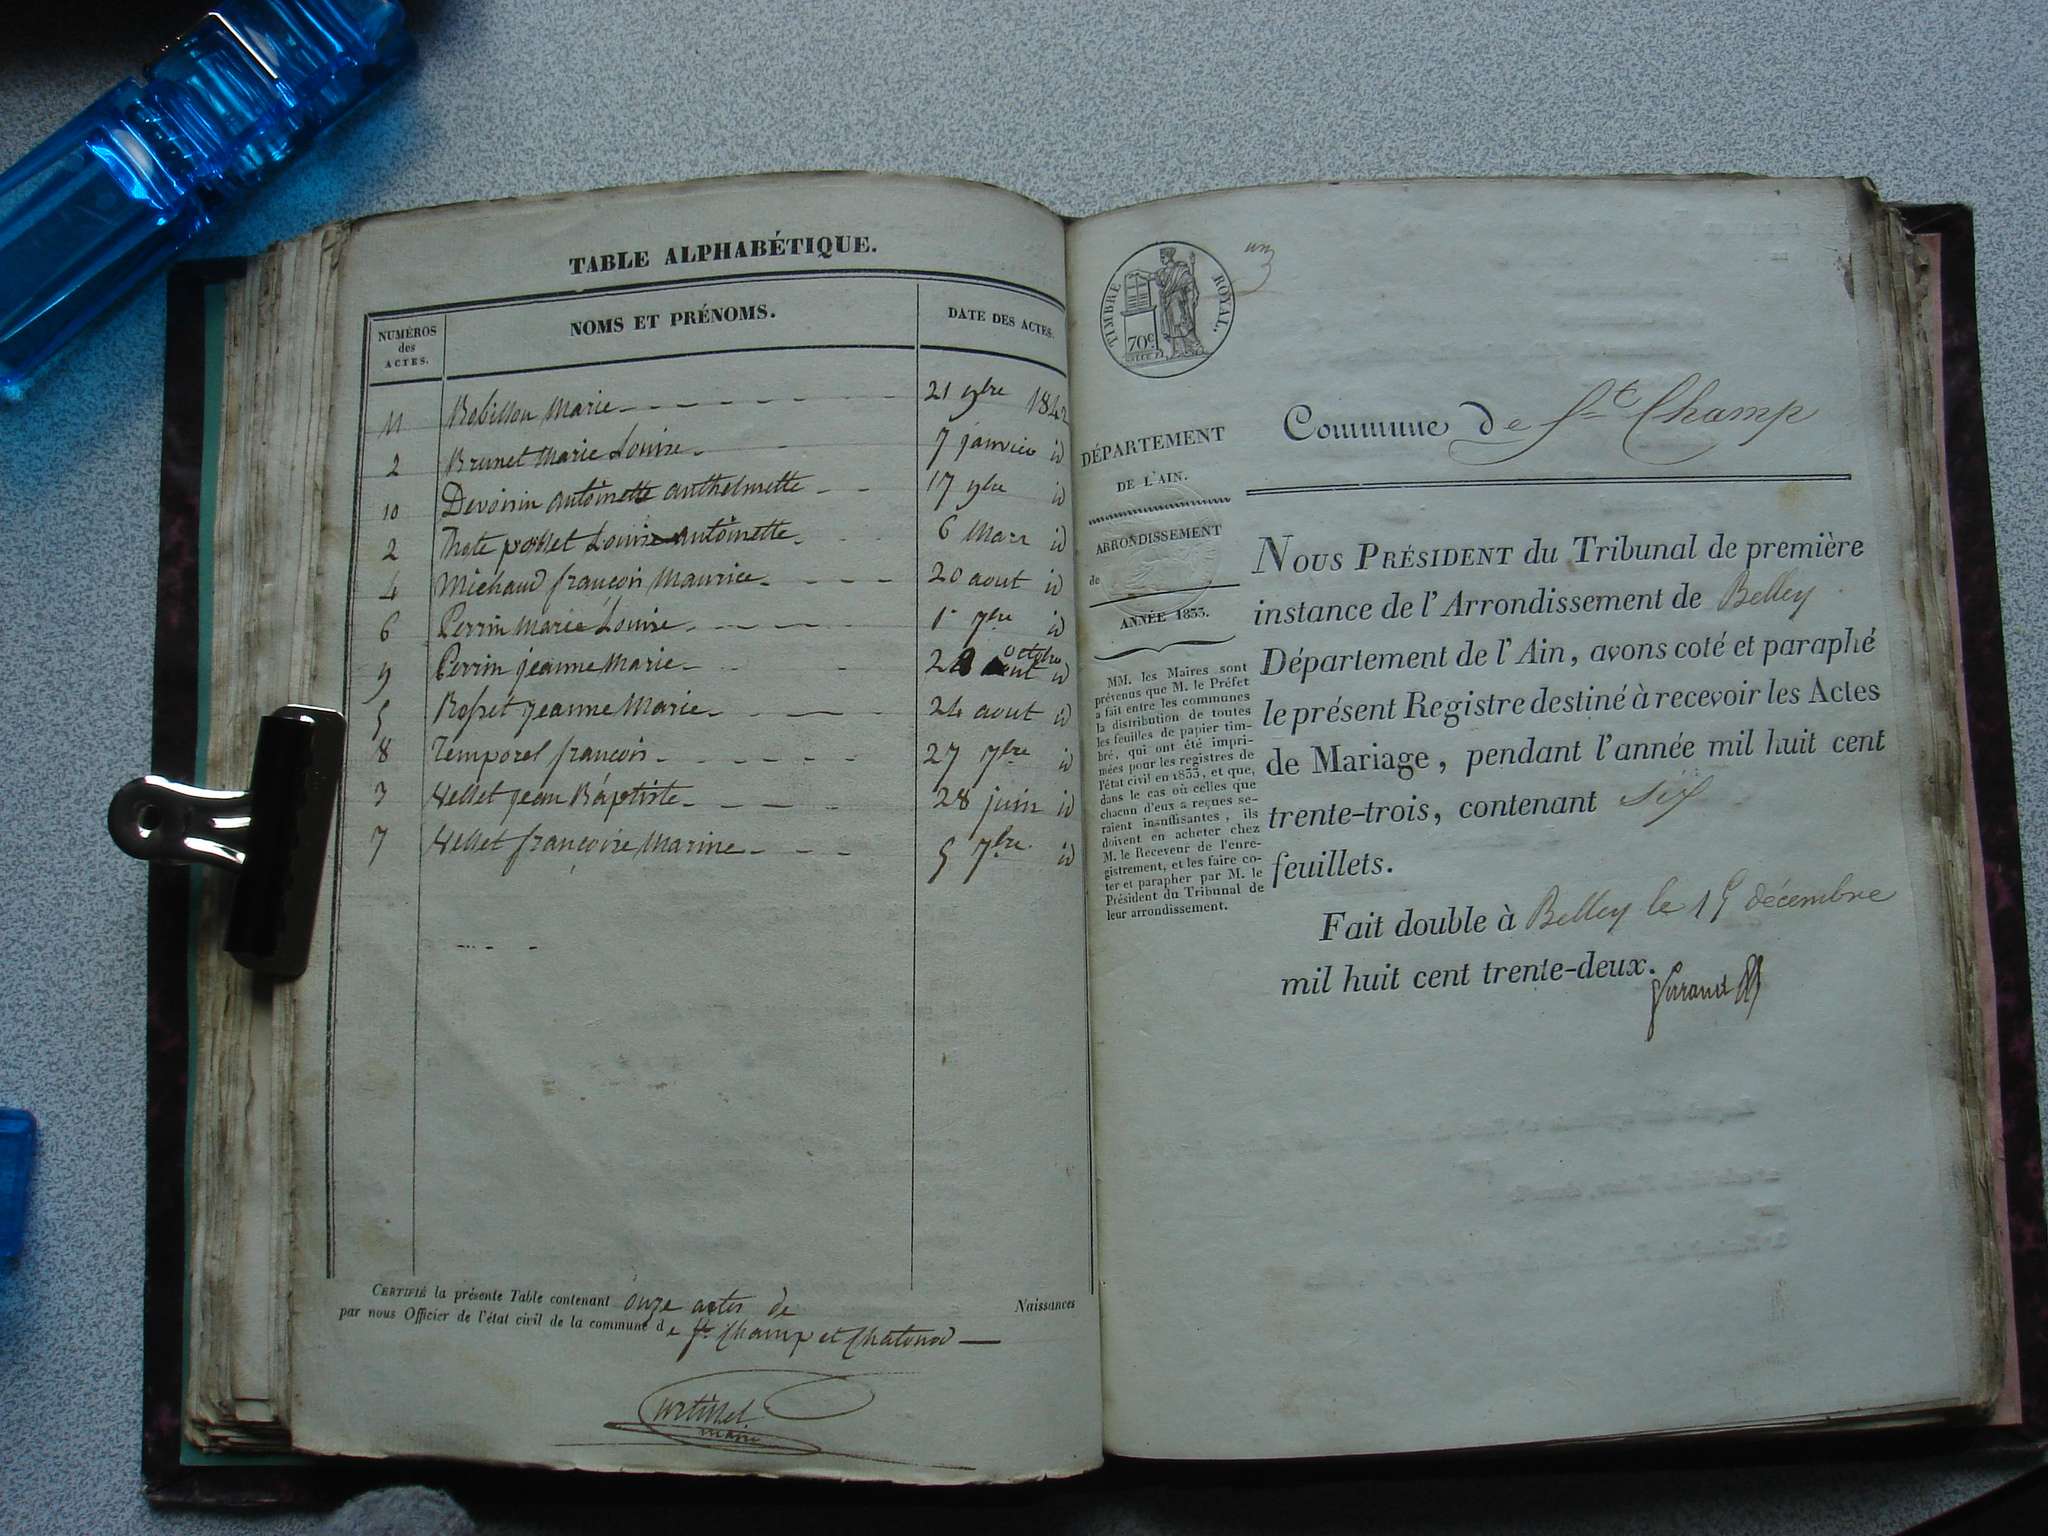 TABLE ALPHABÉTIQUE.
NUMÉROS des ACTES. NOMS ET PRÉNOMS. DATE DES ACTES.
11 Robillon Marie 21 9bre 1842
2 Brunet Marie Louise 7 janvier id
10 Devoisin antoinette anthelmette 17 9bre id
2 Louise Antoinette 6 Mars id
4 Michaud françois Maurice 20 aout id
6 Perrin Marie Louise 1r 7bre id
9 Perrin jeanne Marie 28 octobre id
5 Rosset jeanne Marie 24 aout id
8 Temporel françois 27 7bre id
3 Vellet jean Baptiste 28 juin id
7 Vellet françoise Marine 5 7bre id
CERTIFIÉ la présente Table contenant onze actes de Naissances
par nous Officier de l'état civil de la commune de St. Champ et Chatonod
maire
un
TIMBRE ROYAL.
70c.
Commune de St Champ
DÉPARTEMENT
DE L'AIN.
ARRONDISSEMENT
de
ANNÉE 1833.
MM. les Maires sont
prévenus que M. le Préfet
a fait entre les communes
la distribution de toutes
les feuilles de papier tim-
bré, qui ont été impri-
mées pour les registres de
l'état civil en 1833, et que,
dans le cas où celles que
chacun d'eux a reçues se-
raient insuffisantes, ils
doivent en acheter chez
M. le Receveur de l'enre-
gistrement, et les faire co-
ter et parapher par M. le
Président du Tribunal de
leur arrondissement.
NOUS PRÉSIDENT du Tribunal de première
instance de l'Arrondissement de Belley
Département de l'Ain, avons coté et paraphé
le présent Registre destiné à recevoir les Actes
de Mariage, pendant l'année mil huit cent
trente-trois, contenant six
feuillets.
Fait double à Belley le 15 décembre
mil huit cent trente-deux.